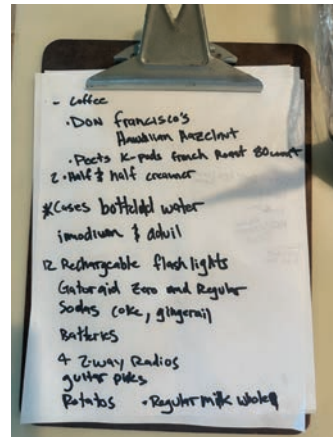 - Coffee
• Don Francisco's
Hawaiian Hazelnut
• Peets K-pods french Roast 80 count
2 • Half & half creamer
*Cases bottled water
imodium & advil
12 Rechargeable flashlights
Gatoraid Zero and Regular
Sodas coke, gingerail
Batteries
4 2-way Radios
guitar picks
Potatos • Regular milk whole